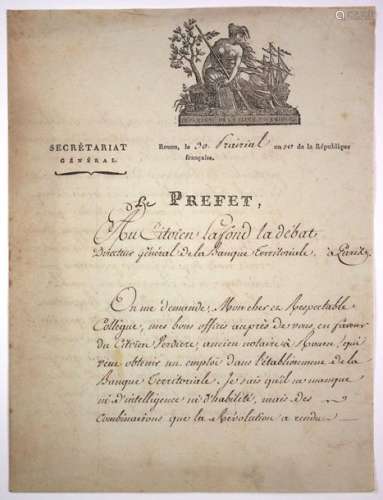 SECRÉTARIAT
GÉNÉRAL.
Rouen, le 30 Prairial an 10 de la République
française.
Le PREFET,
Au Citoien lafond ladébat,
Directeur général de la Banque Territoriale, à Paris
On me demande, Mon cher et Respectable
Collègue, mes bons offices auprès de vous, en faveur
du Citoien, ancien notaire à Rouen, qui
veut obtenir un emploi dans l'établissement de la
Banque Territoriale. Je sais qu'il ne manque
ni d'intelligence ni d'habilité, mais des
Combinaisons que la Révolution a rendu